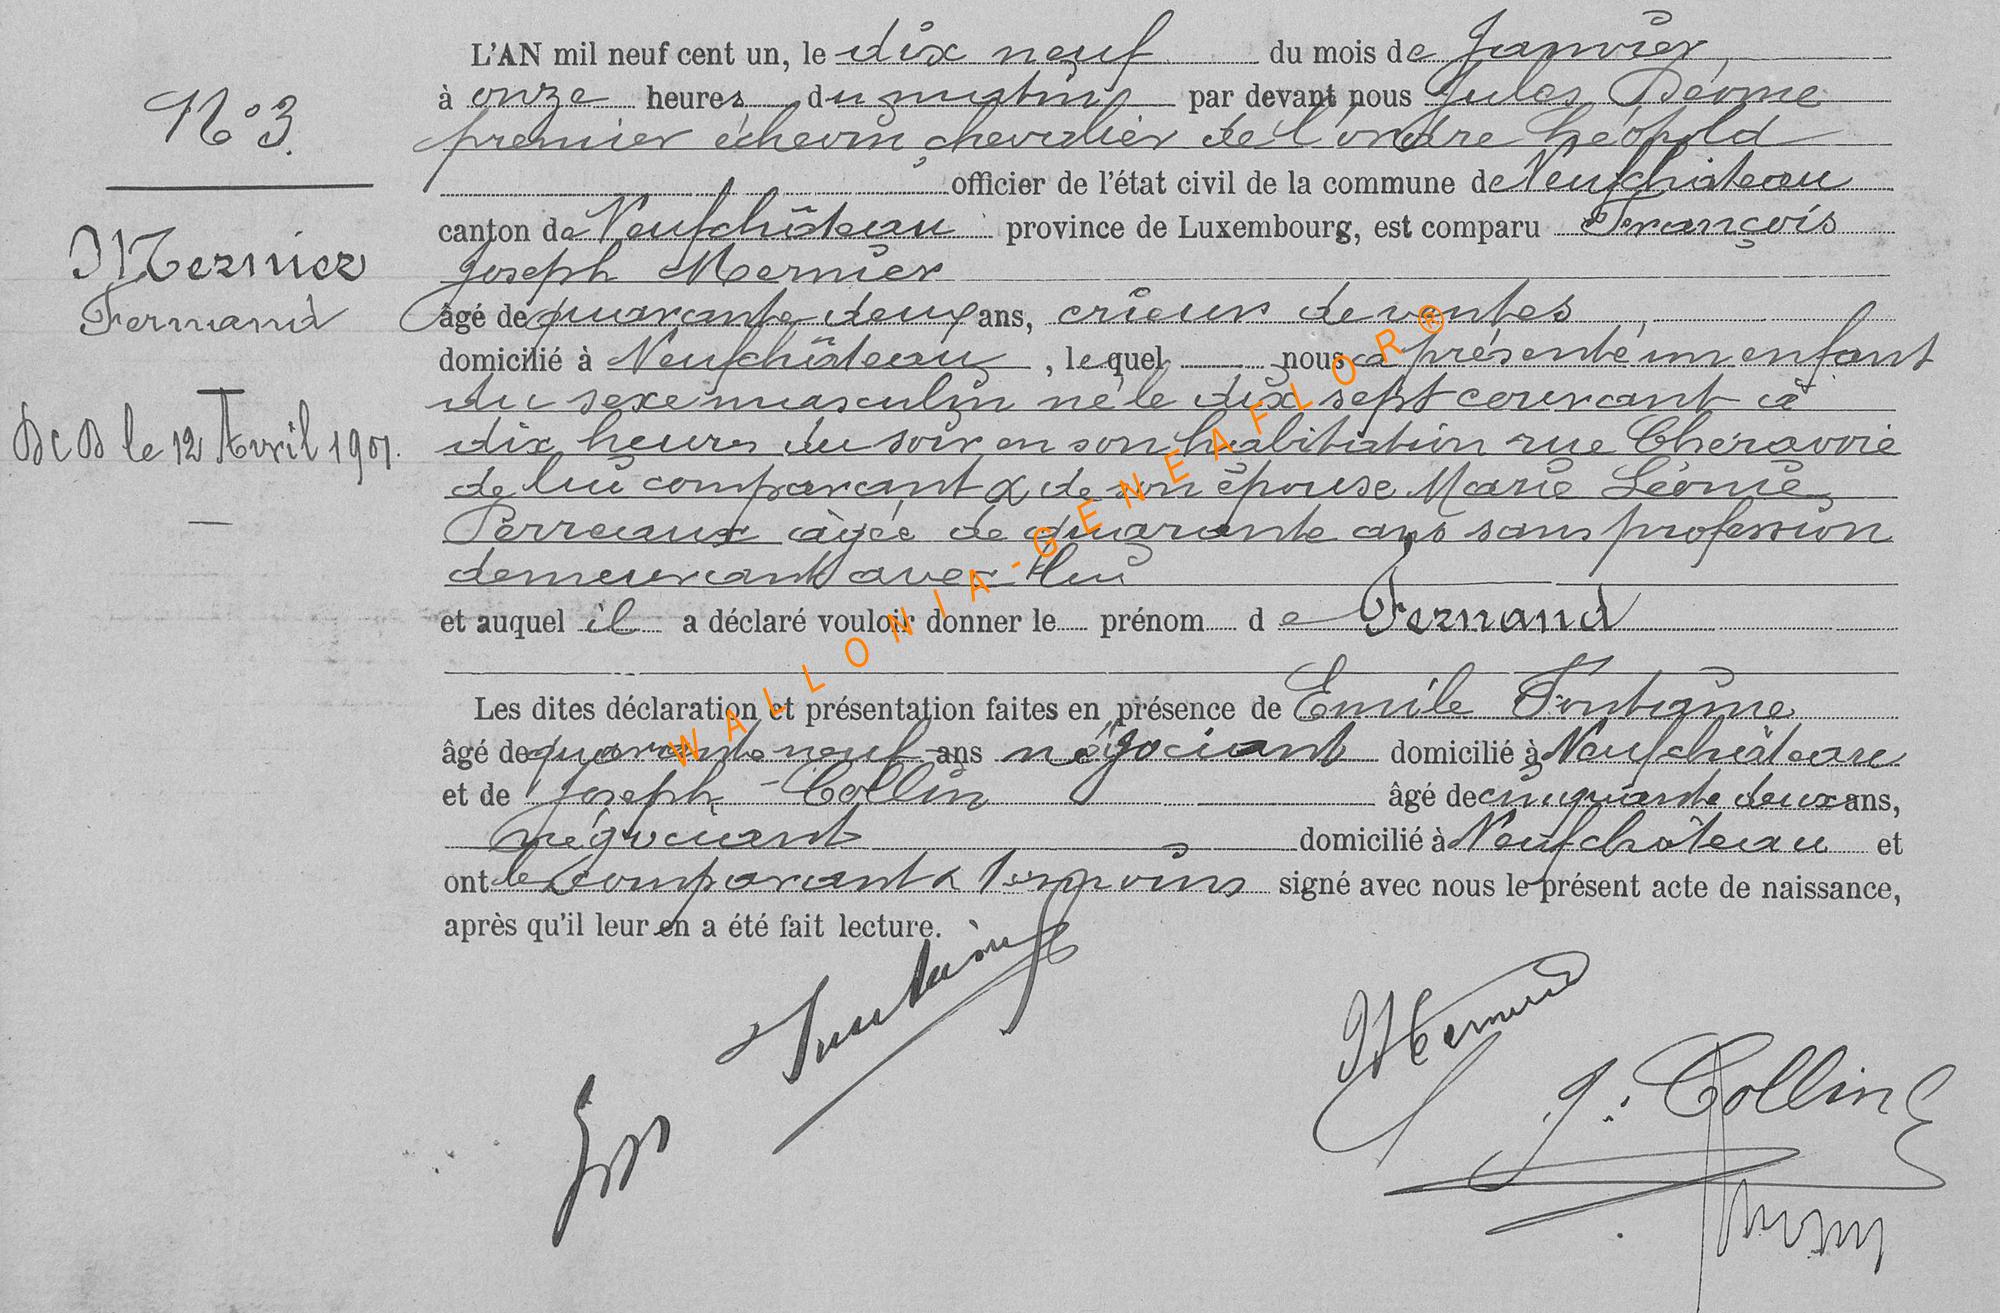 N° 3.
Mernier
Fernand
DCD le 12 Avril 1901.
L'AN mil neuf cent un, le dix neuf du mois de Janvier,
à onze heures du matin par devant nous Jules Déome
premier échevin, chevalier de l'ordre Léopold
officier de l'état civil de la commune de Neufchâteau
canton de Neufchâteau province de Luxembourg, est comparu François
Joseph Mernier
âgé de quarante deux ans, crieur de ventes
domicilié à Neufchâteau, lequel nous a présenté un enfant
du sexe masculin né le dix sept courant à
dix heures du soir en son habitation rue Cheravoie
de lui comparant & de son épouse Marie Léonie
Perreaux âgée de quarante ans sans profession
demeurant avec lui
et auquel il a déclaré vouloir donner le prénom de Fernand
Les dites déclaration et présentation faites en présence de Emile Fontaine,
âgé de quarante neuf ans négociant domicilié à Neufchâteau
et de Joseph Collin âgé de cinquante deux ans,
négociant domicilié à Neufchâteau et
ont les comparant & témoins signé avec nous le présent acte de naissance,
après qu'il leur en a été fait lecture.
Fontaine
Mernier
J. Collin
WALLONIA-GENEAFLOR®